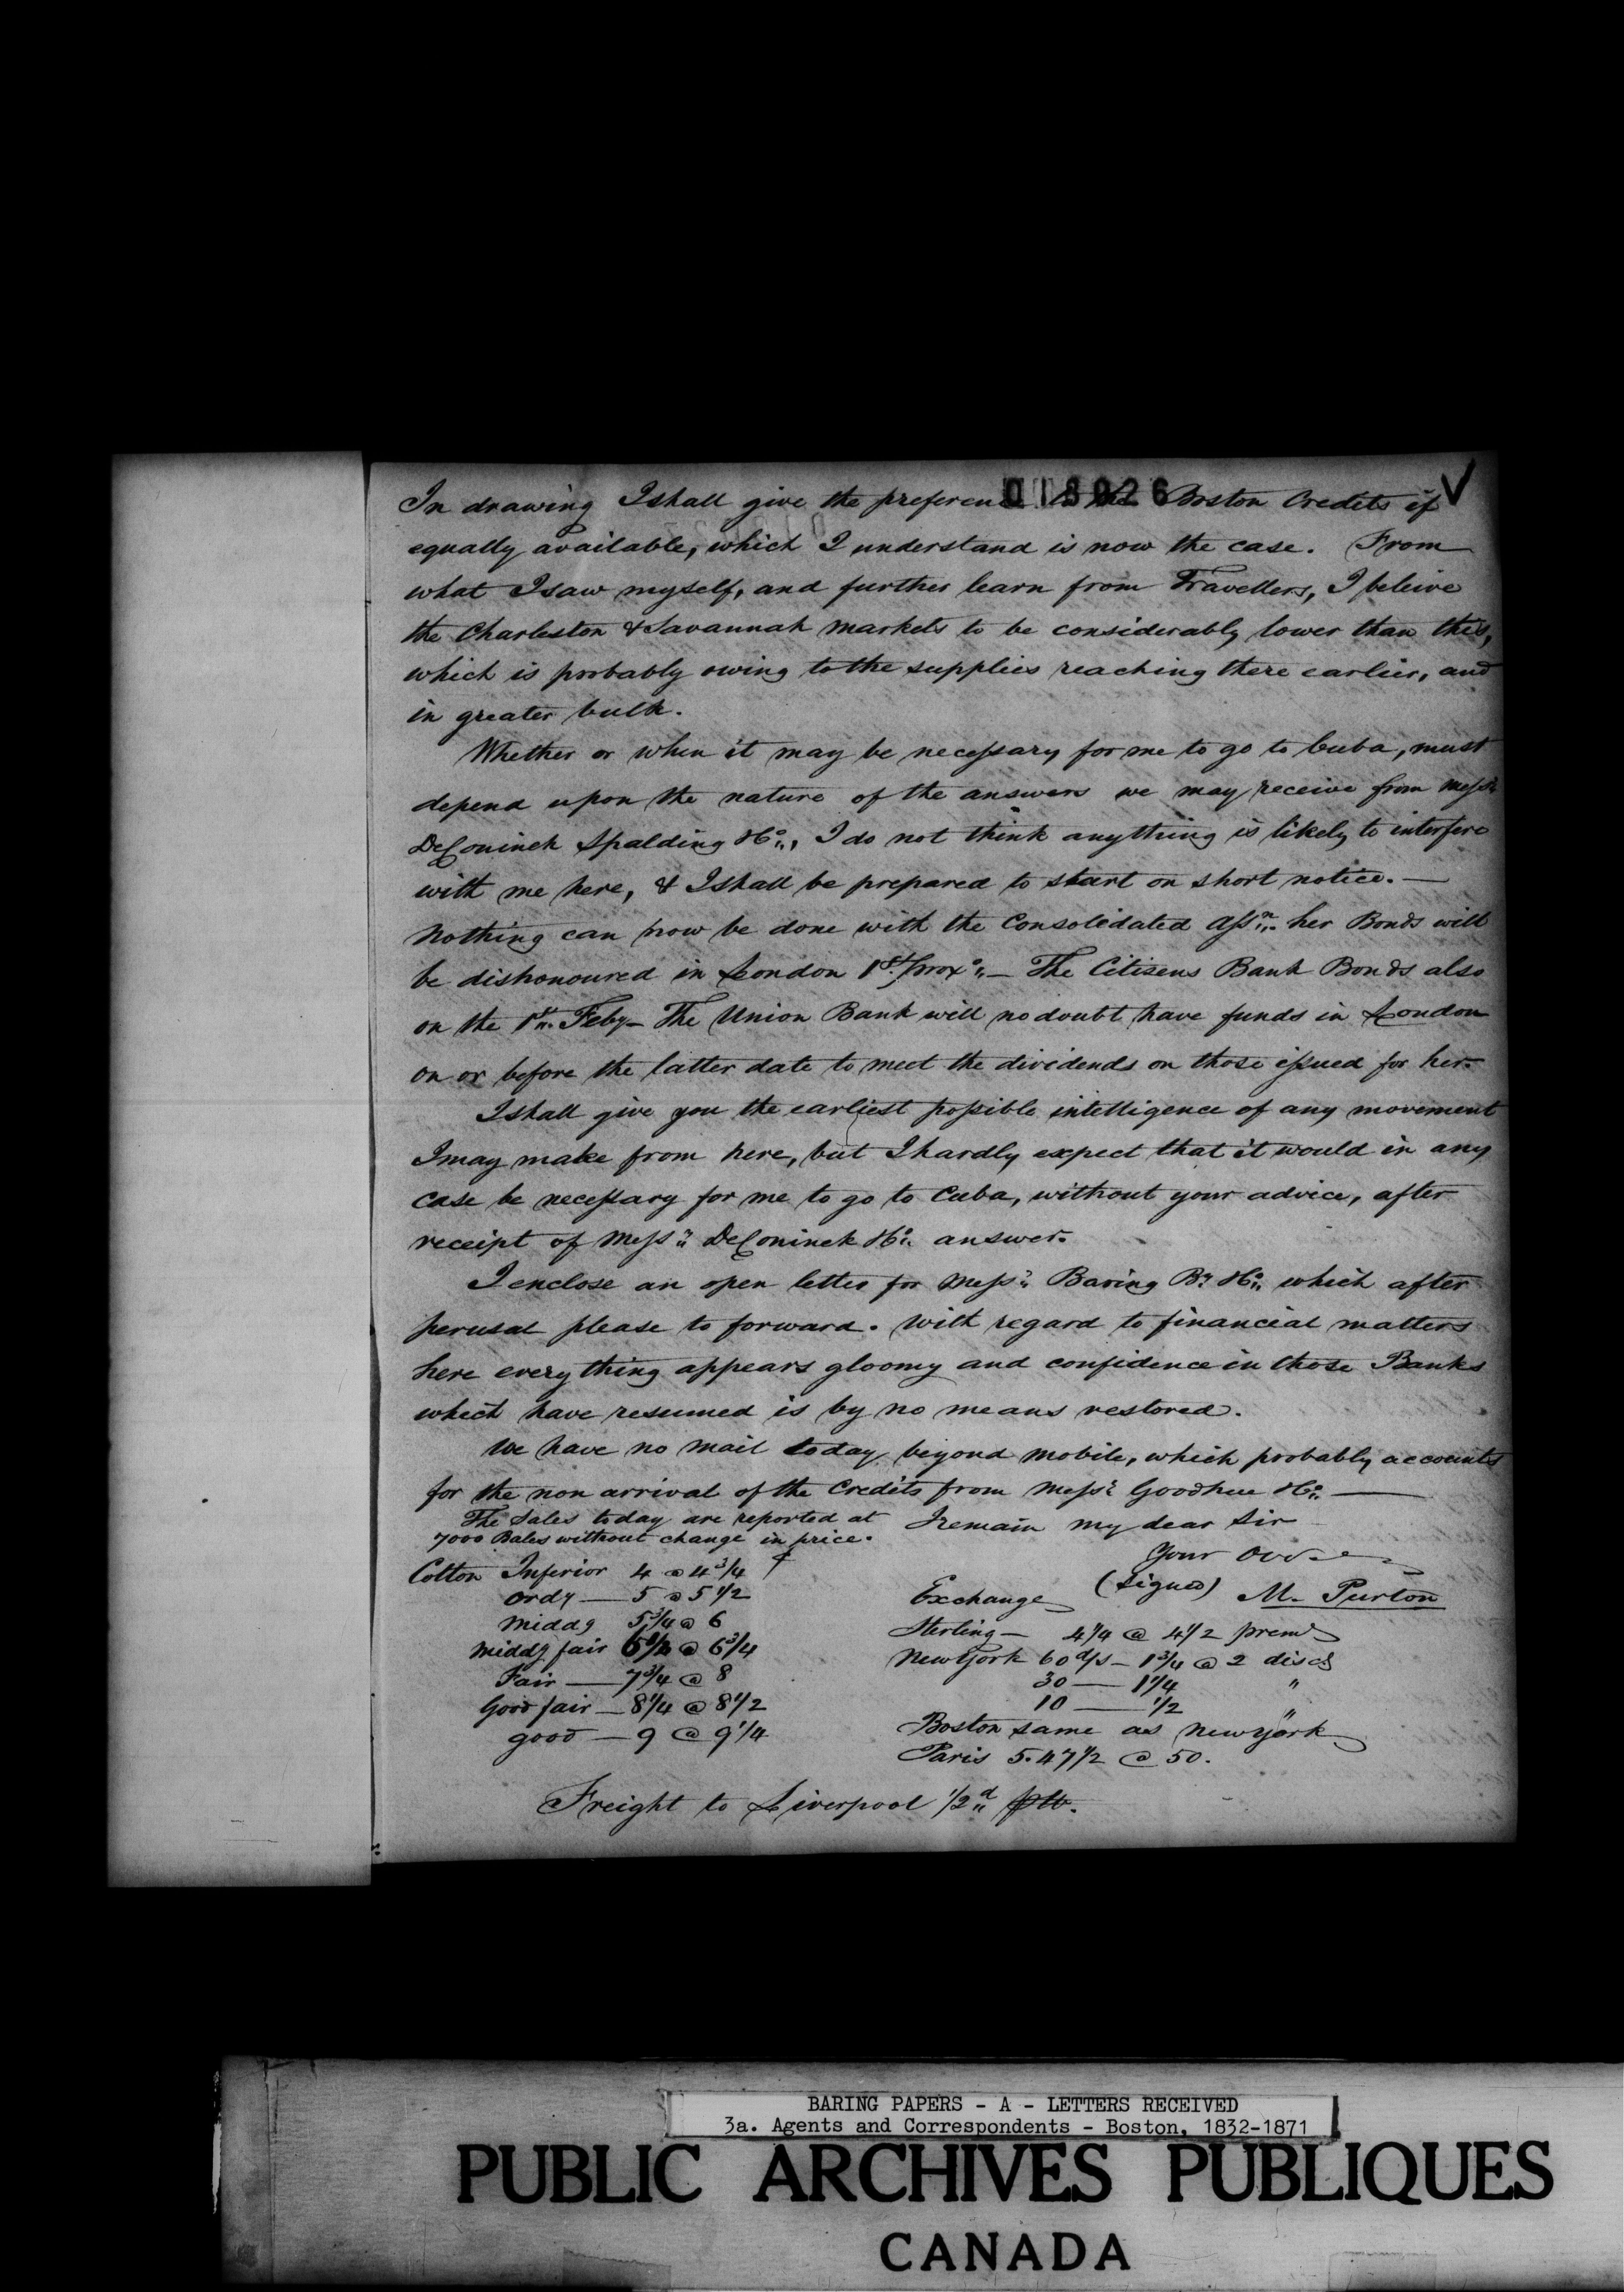 018926
In drawing I shall give the preference to the Boston Credits if
equally available, which I understand is now the case. From
what I saw myself, and further learn from Travellers, I beleive
the Charleston & Savannah markets to be considerably lower than this,
which is probably owing to the supplies reaching there earlier, and
in greater bulk.
Whether or when it may be necessary for me to go to Cuba, must
depend upon the nature of the answers we may receive from Messrs
DeConinck Spalding & Co., I do not think anything is likely to interfere
with me here, & I shall be prepared to start on short notice. —
Nothing can now be done with the Consolidated Assn. her Bonds will
be dishonoured in London 1st proxo. — The Citizens Bank Bonds also
on the 1st Feby — The Union Bank will no doubt have funds in London
on or before the latter date to meet the dividends on those issued for her.
I shall give you the earliest possible intelligence of any movement
I may make from here, but I hardly expect that it would in any
case be necessary for me to go to Cuba, without your advice, after
receipt of Messrs DeConinck & Co. answer.
I enclose an open letter for Messrs Baring Brs & Co. which after
perusal please to forward. With regard to financial matters
here every thing appears gloomy and confidence in those Banks
which have resumed is by no means restored.
We have no mail today beyond Mobile, which probably accounts
for the non arrival of the Credits from Messrs Goodhue & Co. —
The Sales today are reported at
7000 Bales without change in price.
I remain my dear Sir
Your
(Signed) M. Purton
Cotton Inferior 4 @ 4 3/4 ¢
Ordy — 5 @ 5 1/2
Middg 5 3/4 @ 6
Middg fair 6 1/2 @ 6 3/4
Fair — 7 3/4 @ 8
Good fair — 8 1/4 @ 8 1/2
good — 9 @ 9 1/4
Exchange
Sterling — 4 1/4 @ 4 1/2 prem
New York 60 d/s — 1 3/4 @ 2 disct
30 — 1 1/4 "
10 — 1/2 "
Boston same as New York
Paris 5.47 1/2 @ 50.
Freight to Liverpool 1/2 d plb.
BARING PAPERS - A - LETTERS RECEIVED
3a. Agents and Correspondents - Boston, 1832-1871
PUBLIC ARCHIVES PUBLIQUES
CANADA